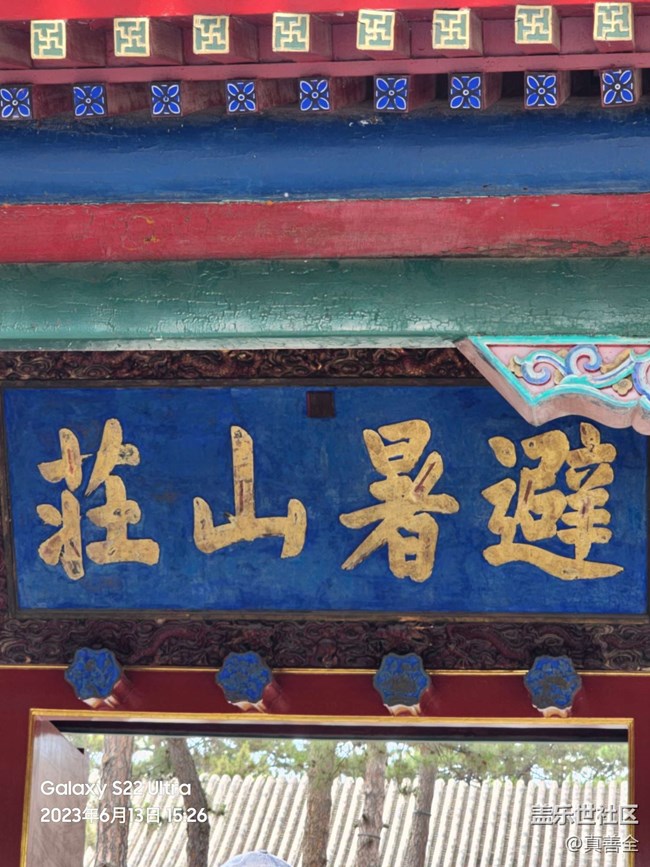 避暑山莊
Galaxy S22 Ultra
2023年6月13日 15:26
盖乐世社区
@真善全